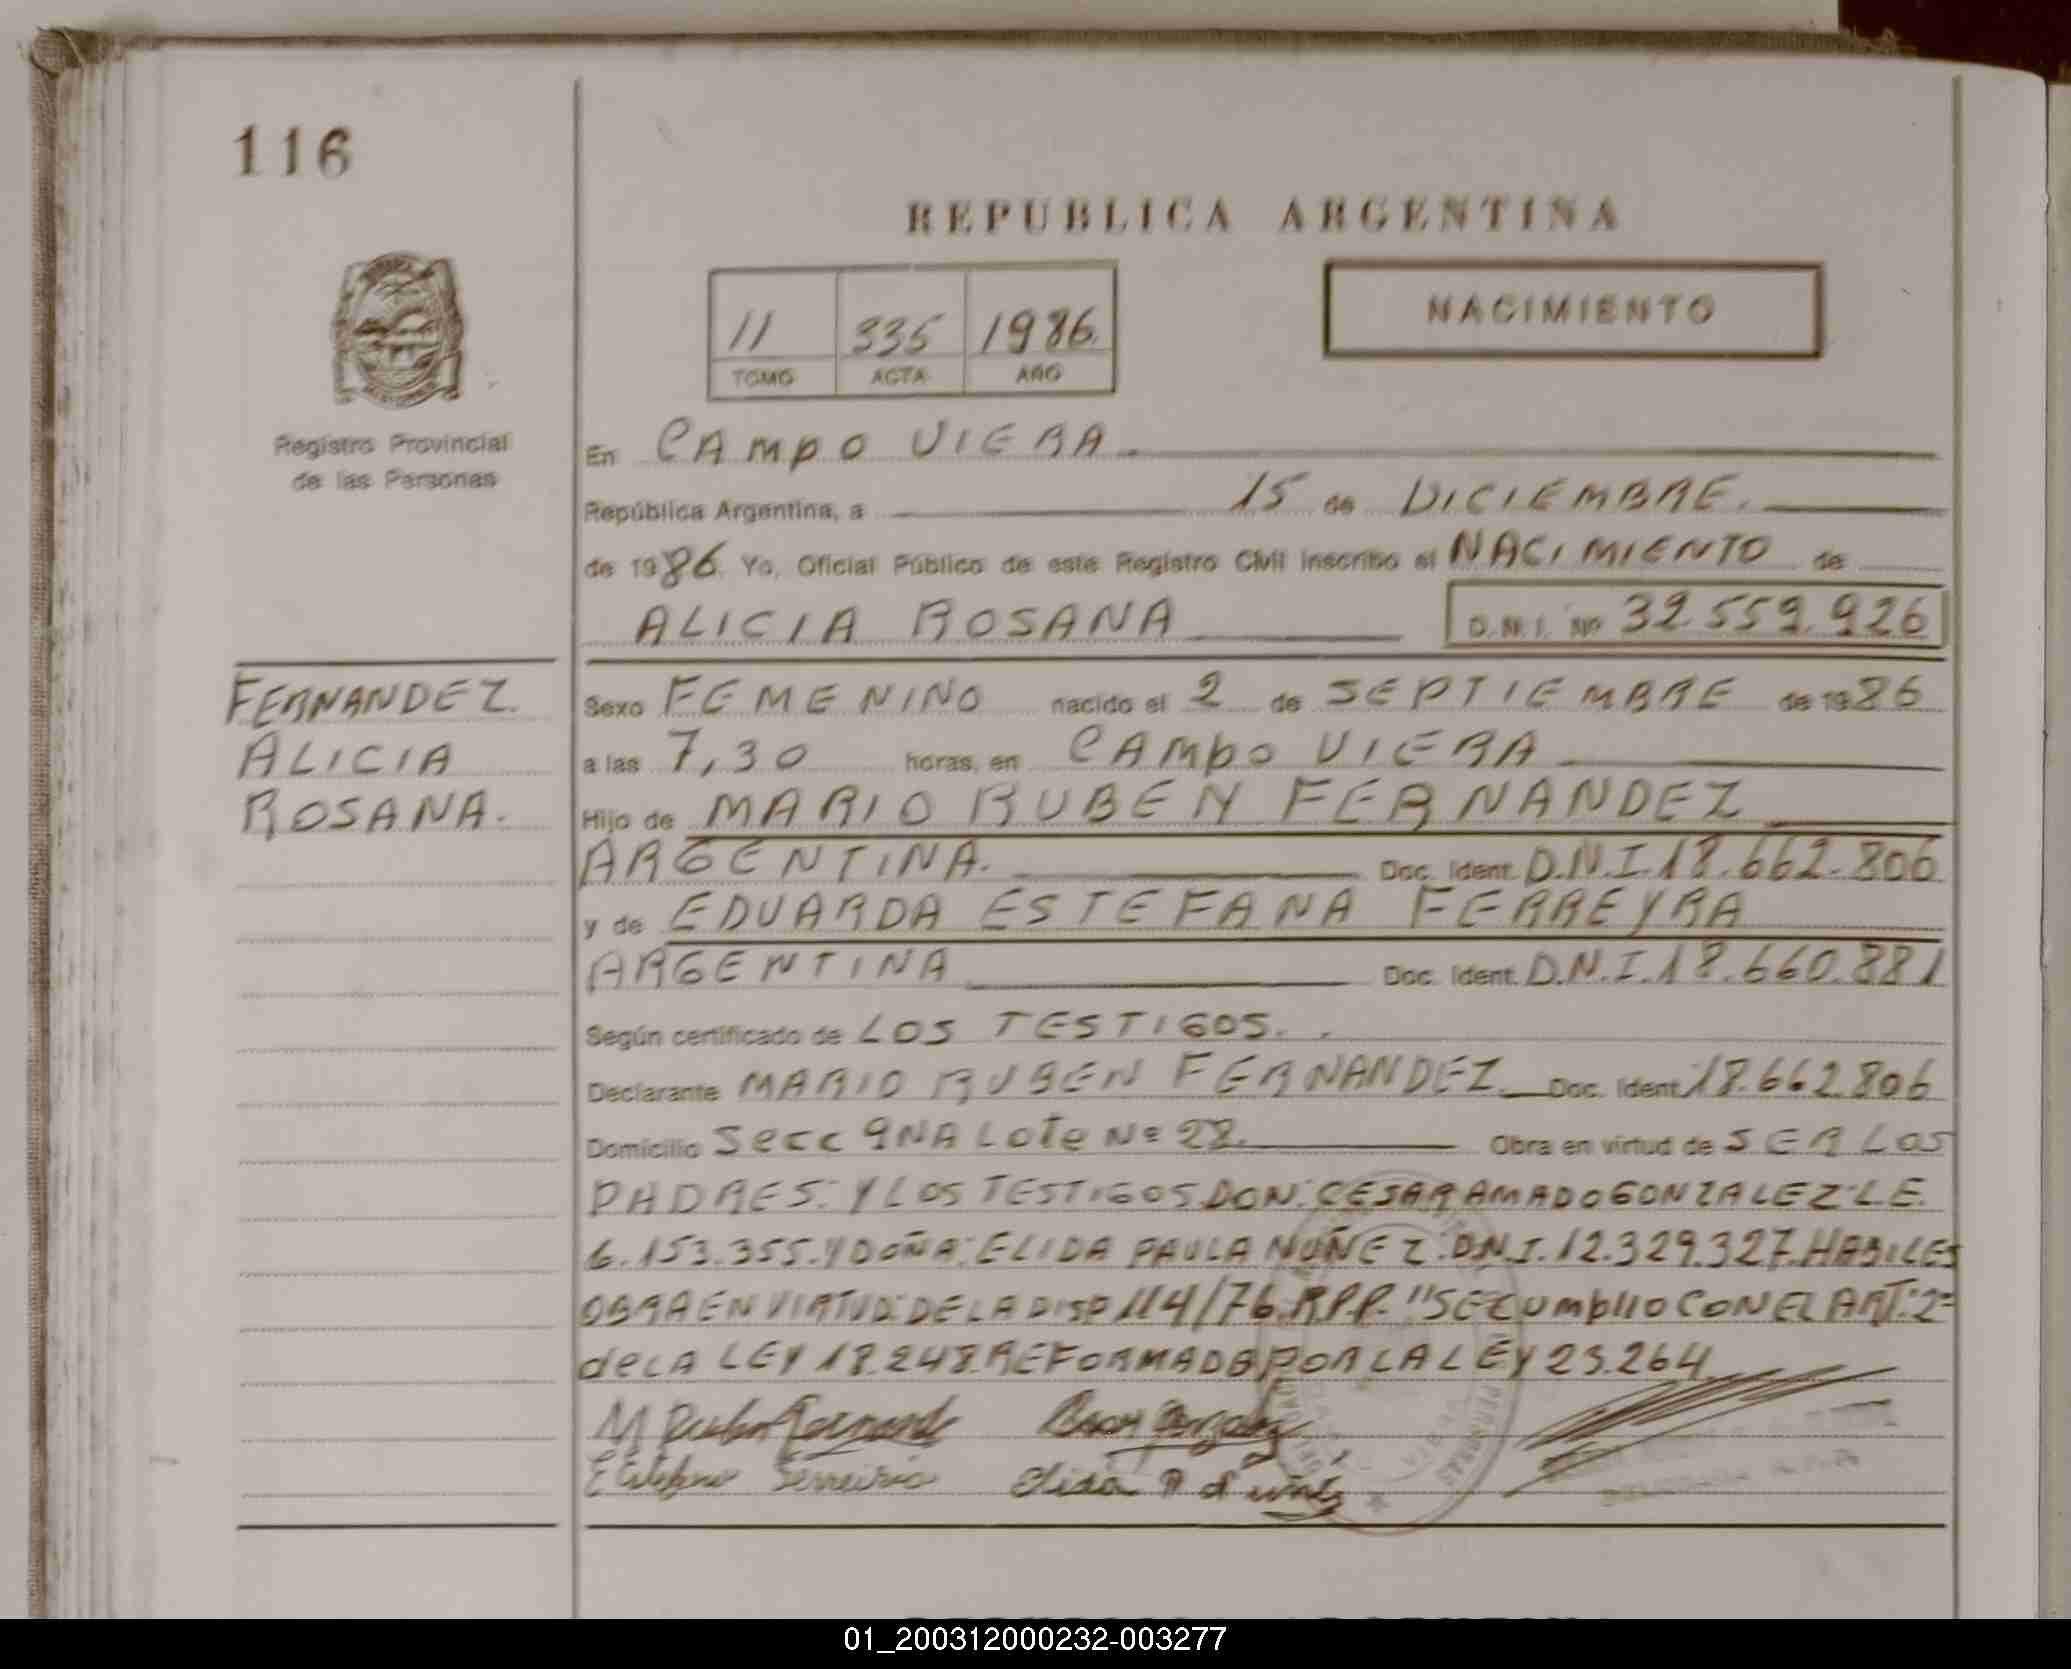 116
REPUBLICA ARGENTINA
NACIMIENTO
11 335 1986.
TOMO ACTA AÑO
Registro Provincial
de las Personas
En CAMPO VIERA.
República Argentina, a 15 de DICIEMBRE.
de 1986. Yo, Oficial Público de este Registro Civil inscribo el NACIMIENTO de
ALICIA ROSANA D.N.I. Nº 32.559.926
FERNANDEZ.
ALICIA
ROSANA.
Sexo FEMENINO nacido el 2 de SEPTIEMBRE de 1986
a las 7,30 horas, en CAMPO VIERA
Hijo de MARIO RUBEN FERNANDEZ
ARGENTINA. Doc. Ident. D.N.I. 18.662.806
y de EDUARDA ESTEFANA FERREYRA
ARGENTINA Doc. Ident. D.N.I. 18.660.881
Según certificado de LOS TESTIGOS.
Declarante MARIO RUBEN FERNANDEZ Doc. Ident. 18.662.806
Domicilio Secc 9NA Lote Nº 28. Obra en virtud de SER LOS
PADRES: Y LOS TESTIGOS DON: CESAR AMADO GONZALEZ: L.E.
6.153.355. Y DOÑA: ELIDA PAULA NUÑEZ: D.N.I. 12.329.327. HABILES
OBRA EN VIRTUD: DE LA DISP 114/76. R.P.P. "SE CUMPLIO CON EL ART: 2º
de LA LEY 18.248. REFORMADA POR LA LEY 23.264
M Ruben Fernande
E Estefana Ferreira
Elida P d Nuñez
01_200312000232-003277